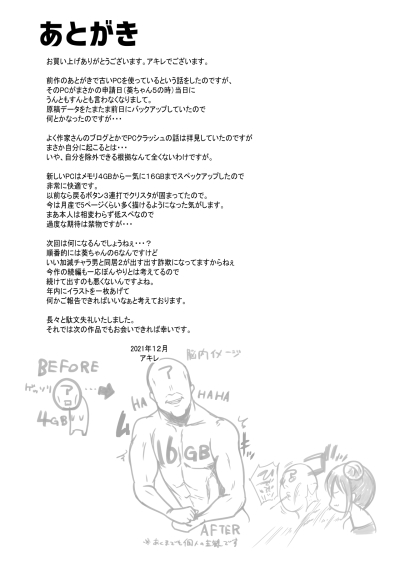 あとがき
お買い上げありがとうございます。アキレでございます。
前作のあとがきで古いPCを使っているという話をしたのですが、
そのPCがまさかの申請日(葵ちゃん5の時)当日に
うんともすんとも言わなくなりまして。
原稿データをたまたま前日にバックアップしていたので
何とかなったのですが・・・
よく作家さんのブログとかでPCクラッシュの話は拝見していたのですが
まさか自分に起こるとは・・・
いや、自分を除外できる根拠なんて全くないわけですが。
新しいPCはメモリ4GBから一気に16GBまでスペックアップしたので
非常に快適です。
以前なら戻るボタン3連打でクリスタが固まってたので。
今は月産で5ページくらい多く描けるようになった気がします。
まあ本人は相変わらず低スペなので
過度な期待は禁物ですが・・・
次回は何になるんでしょうねぇ・・・?
順番的には葵ちゃんの6なんですけど
いい加減チャラ男と同居2が出す出す詐欺になってますからねぇ
今作の続編も一応ぼんやりとは考えてるので
続けて出すのも悪くないんですよね。
年内にイラストを一枚あげて
何かご報告できればいいなぁと考えております。
長々と駄文失礼いたしました。
それでは次の作品でもお会いできれば幸いです。
2021年12月
アキレ
脳内イメージ
BEFORE
ゲッソリ
?
4GB
?
HA
HAHA
16GB
AFTER
※あくまでも個人の主観です